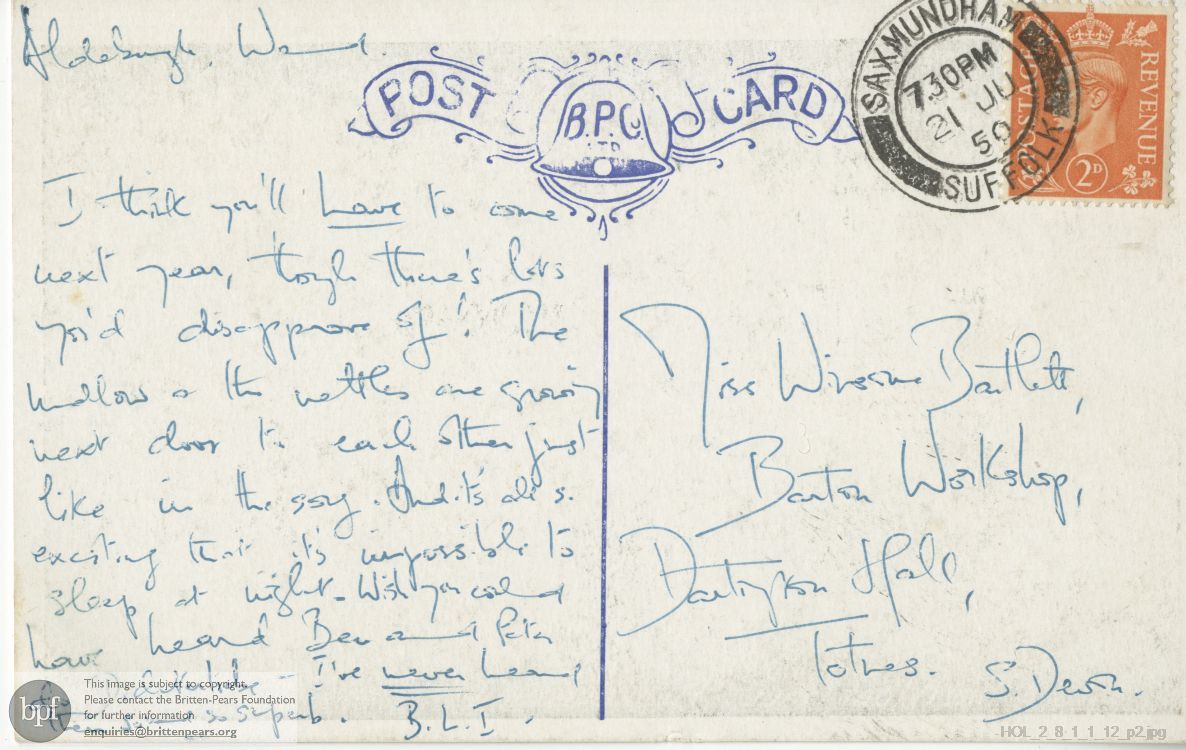 Aldeburgh, Wed
POST CARD
B.P.Co
LTD
SAXMUNDHAM
7.30PM
21 JU
50
SUFFOLK
POSTAGE
REVENUE
2D
I think you'll have to come
next year, though there's lots
you'd disapprove of! The
mallow & the nettles are growing
next door to each other just
like in the song. And it's all so
exciting that it's impossible to
sleep at night. Wish you could
have heard Ben and Peter
I've never heard
so superb. B.L.I.
Miss Winsome Bartlett,
Barton Workshop,
Dartington Hall,
Totnes. S. Devon.
bpf
This image is subject to copyright.
Please contact the Britten-Pears Foundation
for further information
enquiries@brittenpears.org
HOL_2_8_1_1_12_p2.jpg